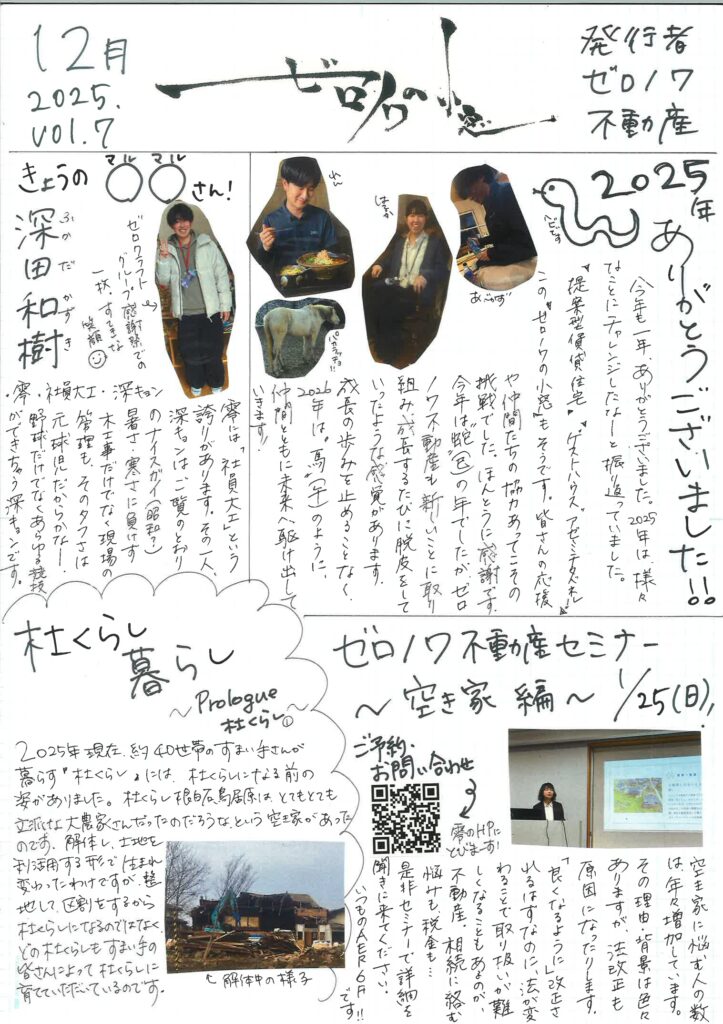 12月
2025.
vol.7
ゼロノワの小窓
発行者
ゼロノワ
不動産
2025年
ありがとうございました!!
ヘビです
今年も一年、ありがとうございました。2025年は様々
なことにチャレンジしたなーと振り返っていました。
"提案型賃貸住宅" "ゲストハウス アゼミチタズネル"
この"ゼロノワの小窓"もそうです。皆さんの応援
や仲間たちの協力あってこその
挑戦でした。ほんとうに感謝です。
今年は"蛇(巳)"の年でしたが、ゼロ
ノワ不動産も新しいことに取り
組み、成長するたびに脱皮をして
いったような感覚があります。
成長の歩みを止めることなく、
2026年は"馬(午)"のように、
仲間とともに未来へ駆け出して
いきます!
きょうの
マル マル
〇〇さん!
深田和樹
ふかだ かずき
ゼロワクラフト
グループ感謝祭での
一枚、すてきな
笑顔
・零・社員大工・深キョン
零には「社員大工」という
誇りがあります。その一人、
深キョンはご覧のとおり
のナイスガイ(昭和?)
暑さ・寒さに負けず
木工事だけでなく現場の
管理も、そのタフさは
元球児だからかなー!
野球だけでなくあらゆる競技
ができちゃう深キョンです。
杜くらし
暮らし
~Prologue
杜くらし①
2025年現在、約40世帯のすまい手さんが
暮らす『杜くらし』には、杜くらしになる前の
姿がありました。杜くらし根白石鳥居原は、とてもとても
立派な大農家さんだったのだろうな、という空き家があった
のです。解体し、土地を
利活用する形で生まれ
変わったわけですが、整
地して、区割をするから
杜くらしになるのではなく、
どの杜くらしもすまい手の
皆さんによって杜くらしに
育てていただいているのです。
解体中の様子
ゼロノワ不動産セミナー
~空き家編~ 1/25(日),
ご予約・
お問い合わせ
零のHPに
とびます!
空き家に悩む人の数
は、年々増加しています。
その理由・背景は色々
ありますが、法改正も
原因になったりします。
「良くなるように」改正さ
れるはずなのに、法が変
わることで取り扱いが難
しくなることもあるのが、
不動産。相続に絡む
悩みも、税金も…
是非セミナーで詳細を
聞きに来てください。
いつものAER6Fです!!